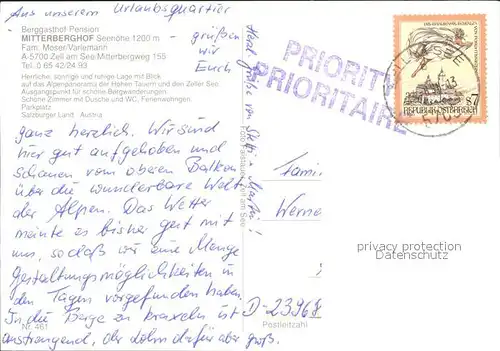 Aus unserem Urlaubsquartier
Berggasthof Pension
MITTERBERGHOF Seehöhe 1200 m
Fam. Moser/Varlemann
A-5700 Zell am See, Mitterbergweg 155
Tel. 0 65 42/24 93
Herrliche, sonnige und ruhige Lage mit Blick
auf das Alpenpanorama der Hohen Tauern und den Zeller See.
Ausgangspunkt für schöne Bergwanderungen.
Schöne Zimmer mit Dusche und WC, Ferienwohnungen.
Parkplatz
Salzburger Land, Austria
- grüßen
wir
Euch
ganz herzlich. Wir sind
hier gut aufgehoben und
schauen vom oberen Balkon
über die wunderbare Welt
der Alpen. Das Wetter
meinte es bisher gut mit
uns, sodaß wir eine Menge
Gestaltungsmöglichkeiten in
den Tagen vorgefunden haben.
In die Berge zu kraxeln ist
anstrengend, der Lohn dafür aber groß.
Nr. 461
Herzl. Grüße von
PRIORITY
PRIORITAIRE
ZELL AM SEE
5700
REPUBLIK ÖSTERREICH
S7
Fami
Werne
privacy protection
Datenschutz
D-23968
Postleitzahl